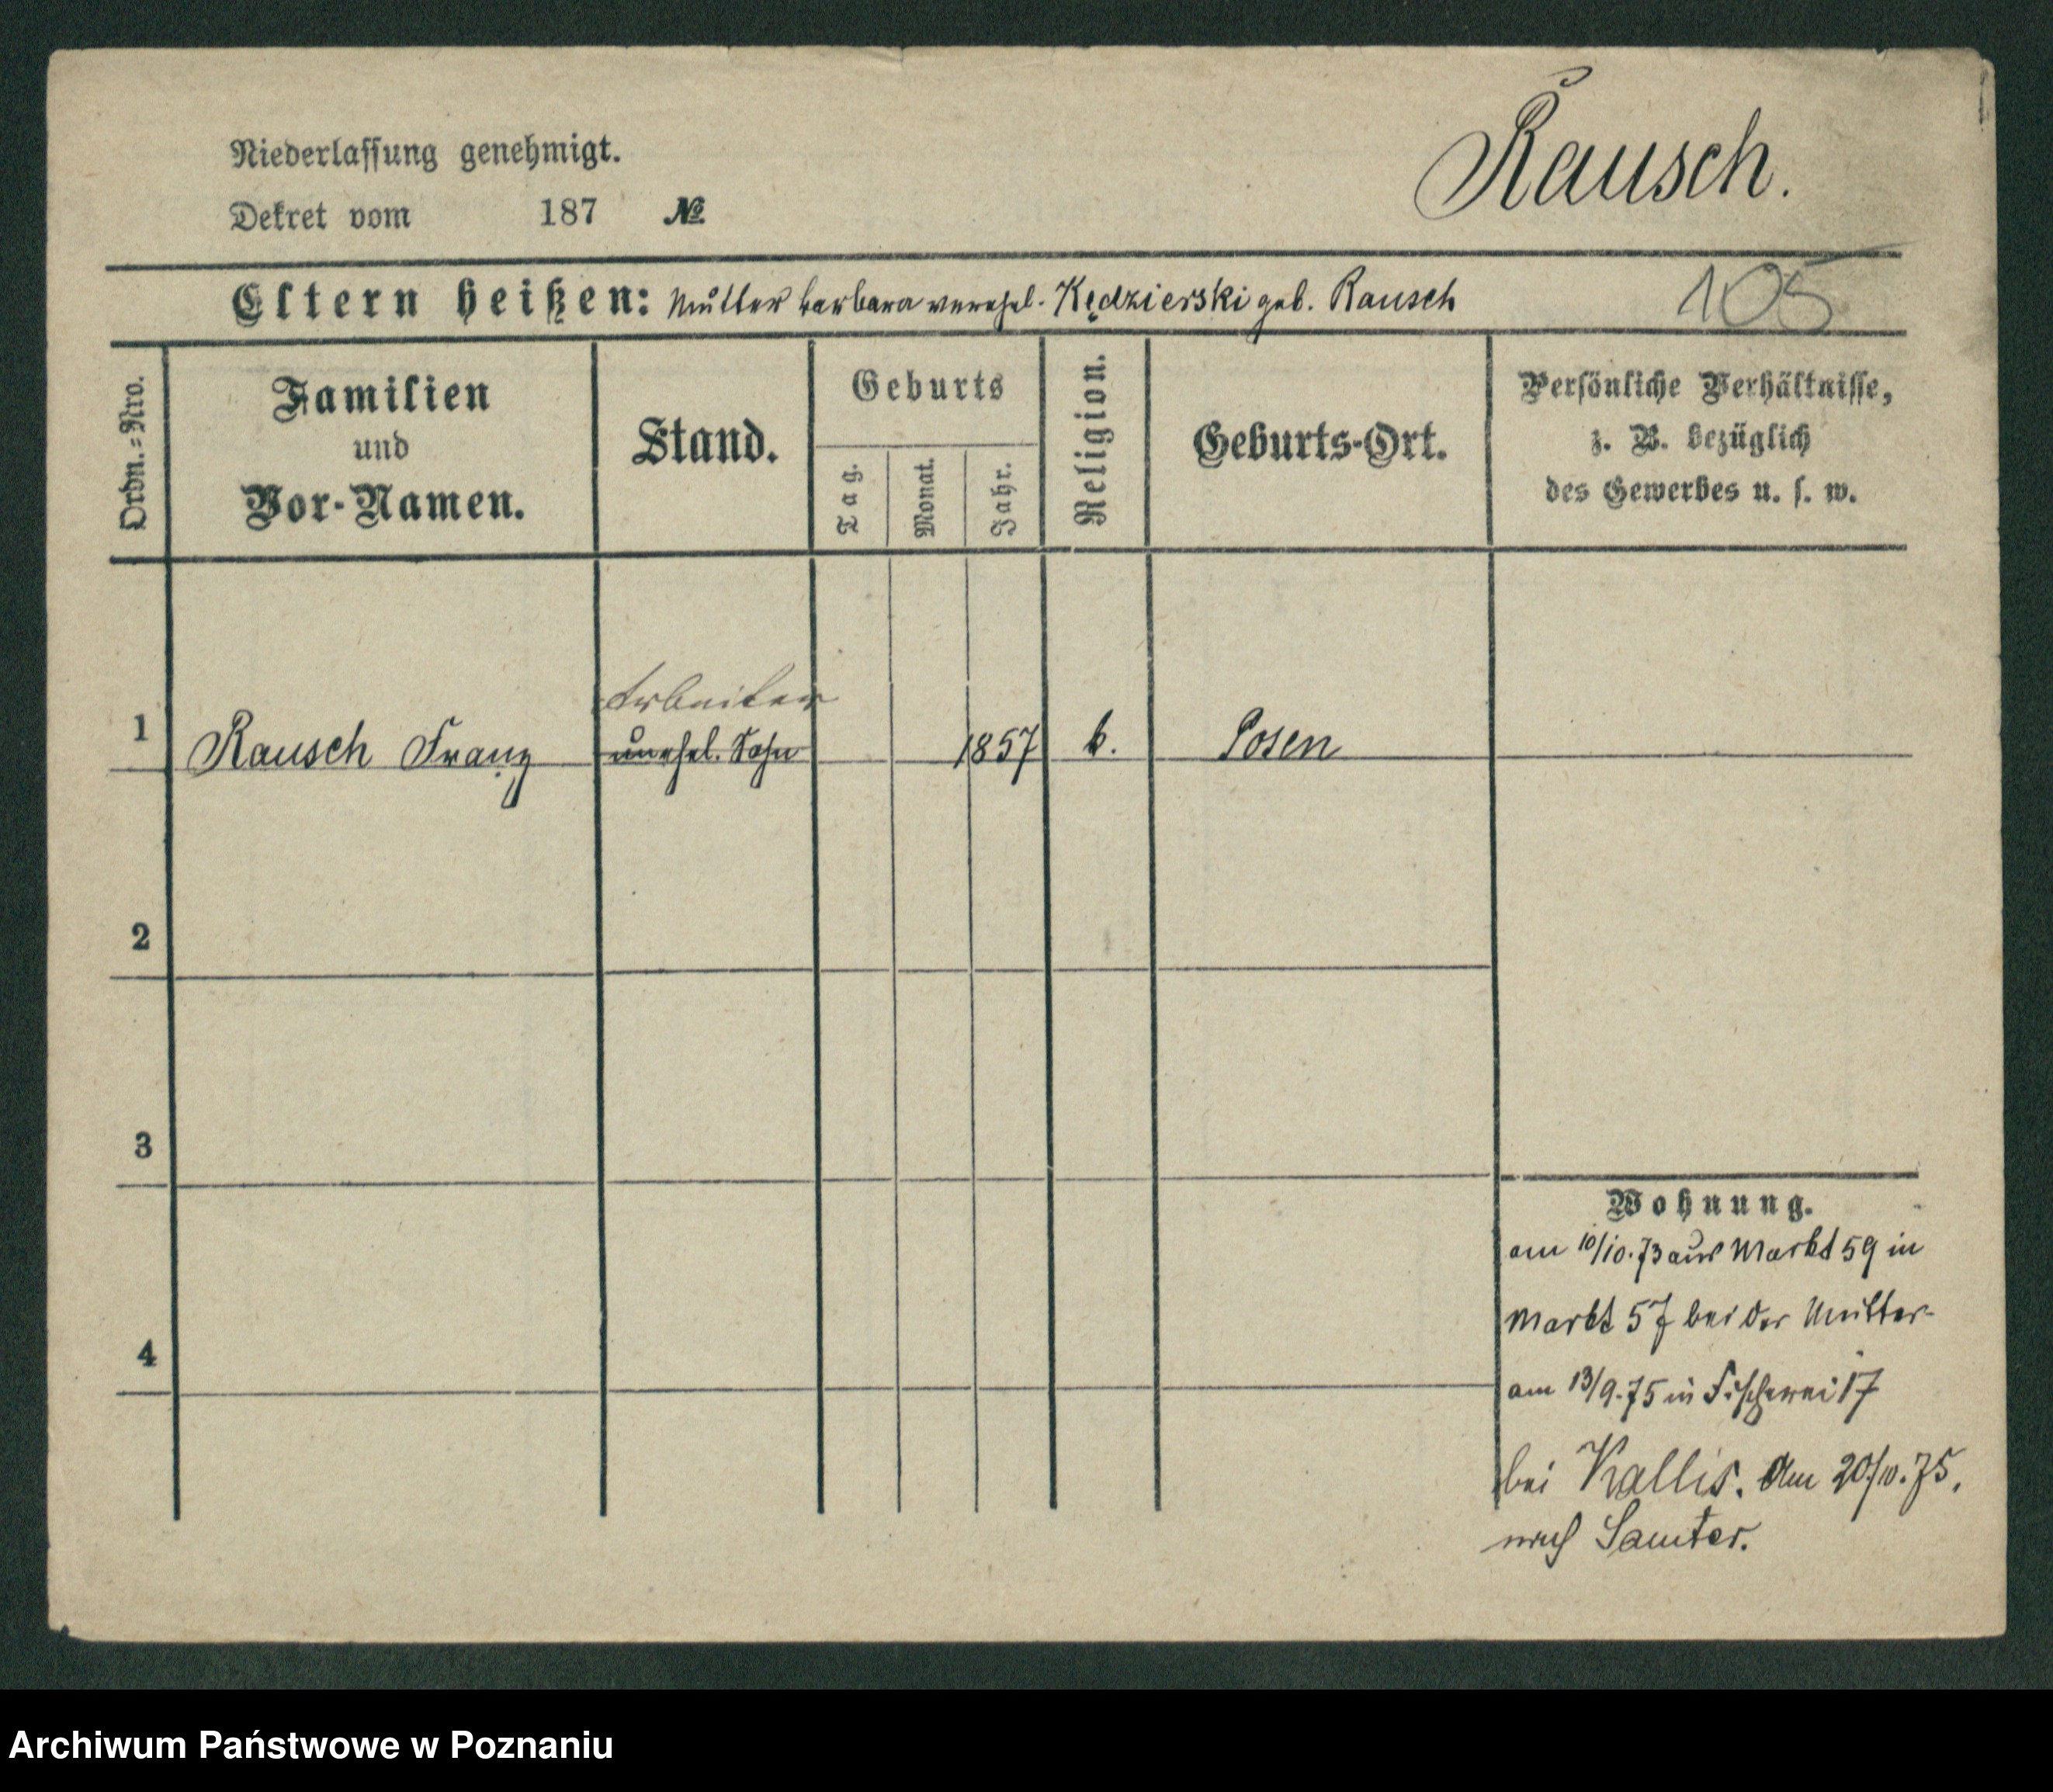 Rausch.
Niederlassung genehmigt.
Dekret vom 187 №
Eltern heißen: Mutter Barbara verehel. Kędzierski geb. Rausch
105
Ordn.=Nro.
Familien
und
Vor-Namen.
Stand.
Geburts
Tag.
Monat.
Jahr.
Religion.
Geburts-Ort.
Persönliche Verhältnisse,
z. B. bezüglich
des Gewerbes u. s. w.
Arbeiter
1 Rausch Franz unehel. Sohn 1857 k. Posen
2
3
4
Wohnung.
am 10/10.73 aus Markt 59 in
Markt 57 bei der Mutter
am 13/9.75 in Fischerei 17
bei Kallis. Am 20/10.75.
nach Samter.
Archiwum Państwowe w Poznaniu